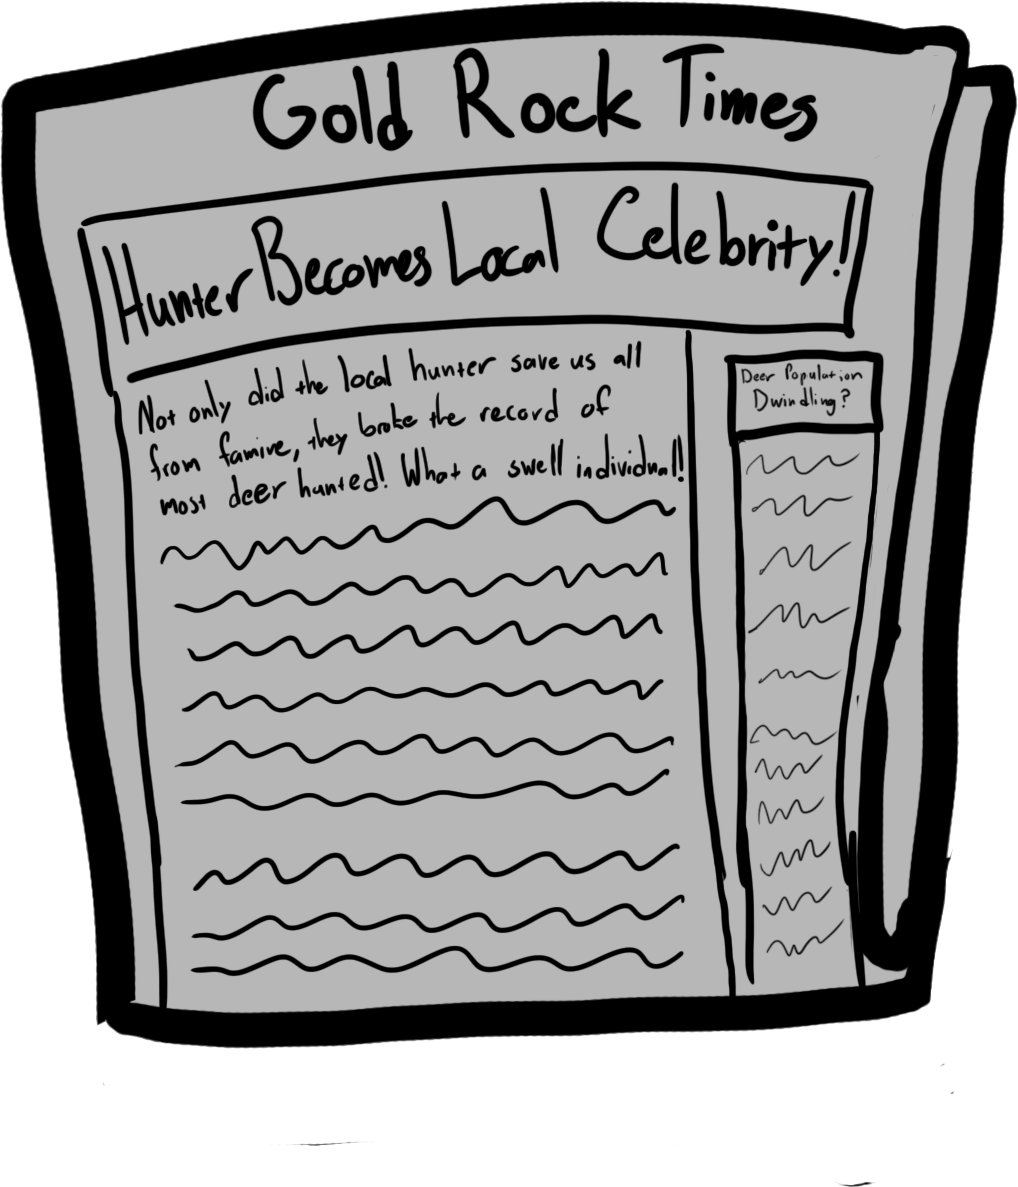 Gold Rock Times
Hunter Becomes Local Celebrity!
Not only did the local hunter save us all
from famine, they broke the record of
most deer hunted! What a swell individual!
Deer Population
Dwindling?